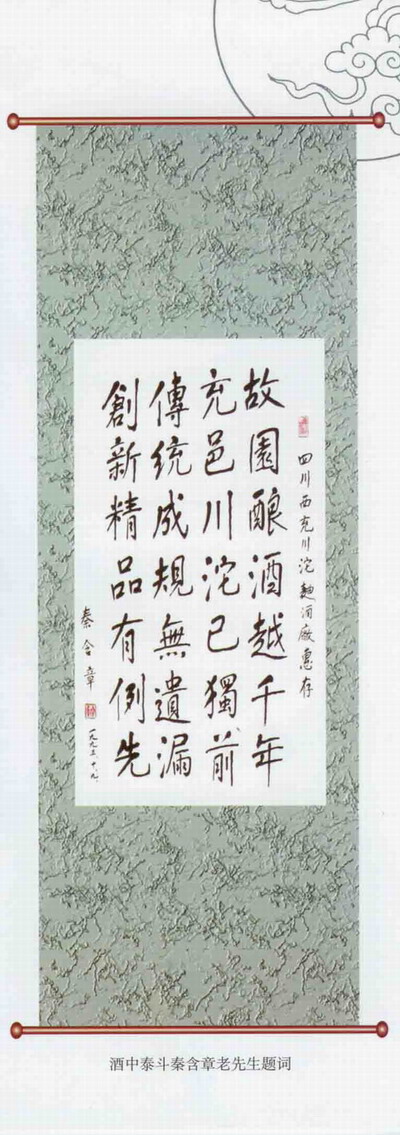 四川西充川沱麯酒廠惠存
故園酿酒越千年
充邑川沱已獨前
傳統成規無遺漏
創新精品有例先
秦含章
一九九五·十·九
酒中泰斗秦含章老先生题词